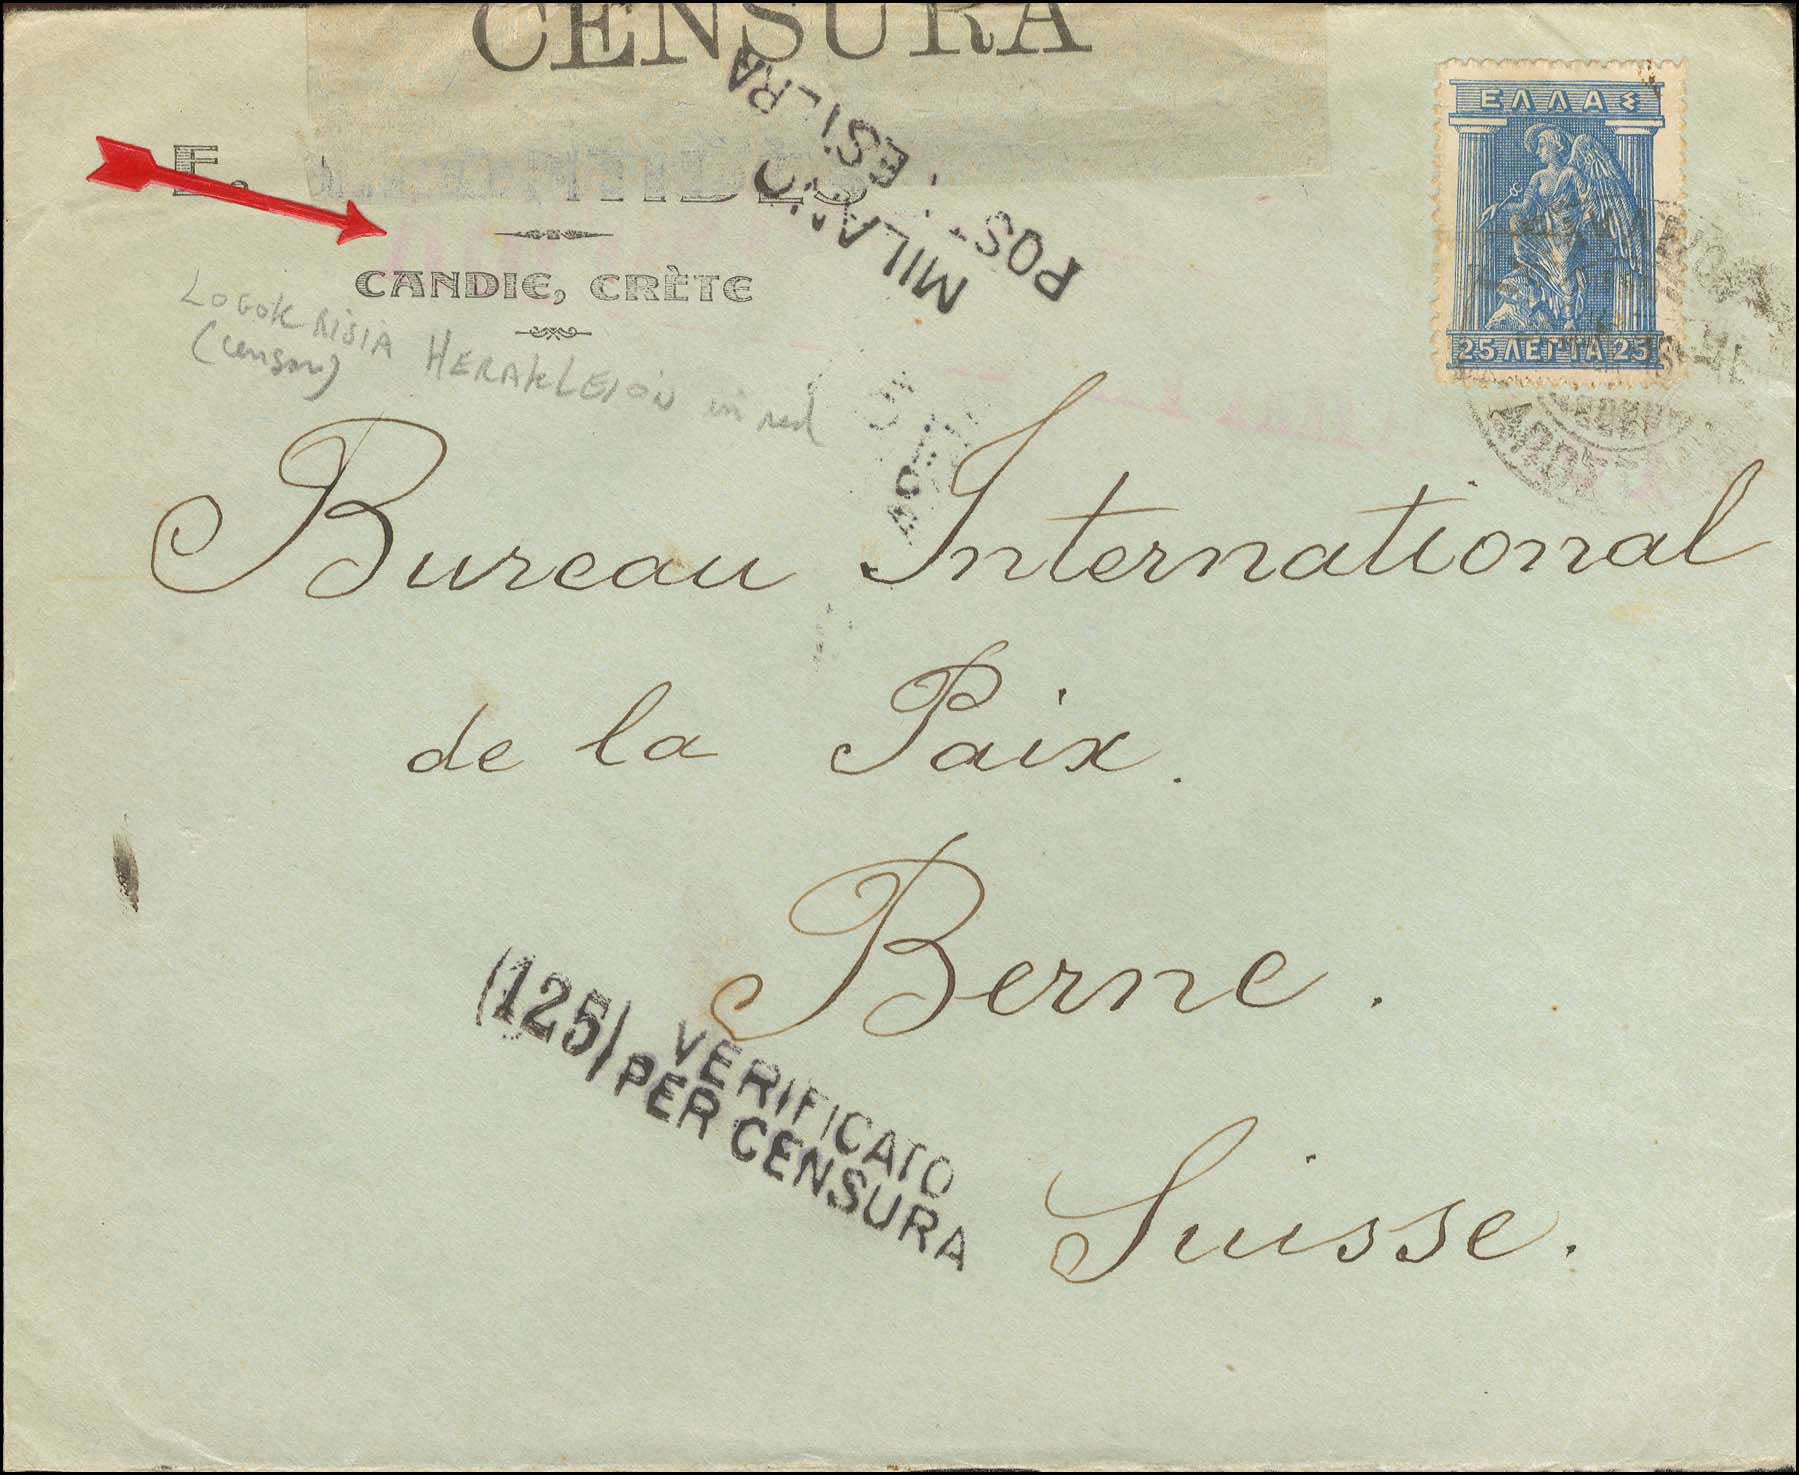 CENSURA
MILANO
POSTA ESTERA
ΕΛΛΑΣ
25 ΛΕΠΤΑ 25
E.
CANDIE, CRÈTE
LOGOKRISIA HERAKLEION in red
(censor)
Bureau International
de la Paix.
Berne.
Suisse.
(125) VERIFICATO
PER CENSURA